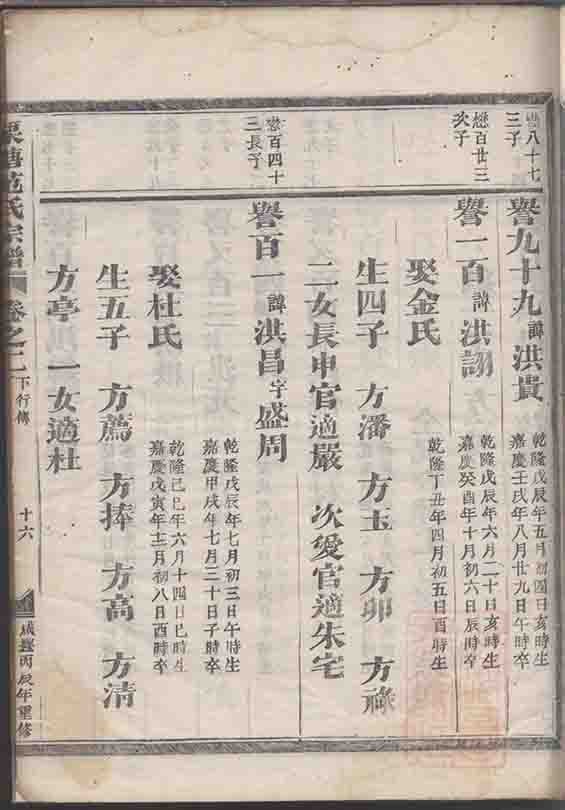 懋八十七
三子
譽九十九 諱 洪貴
乾隆戊辰年五月初四日亥時生
嘉慶壬戌年八月廿九日午時卒
懋百廿三
次子
譽一百 諱 洪詡
乾隆戊辰年六月二十日亥時生
嘉慶癸酉年十月初六日辰時卒
娶金氏
乾隆丁丑年四月初五日酉時生
生四子 方潘 方玉 方卯 方祿
二女長申官適嚴 次愛官適朱宅
懋百四十
三長子
譽百一 諱 洪昌 字 盛周
乾隆戊辰年七月初三日午時生
嘉慶甲戌年七月三十日子時卒
娶杜氏
乾隆己巳年六月十四日巳時生
嘉慶戊寅年十二月初八日酉時卒
生五子 方薦 方捧 方高 方清
方亭 一女適杜
范氏宗譜 卷之二 下行傳 十六 咸豐丙辰年重修